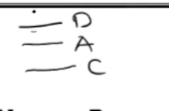 D
A
C